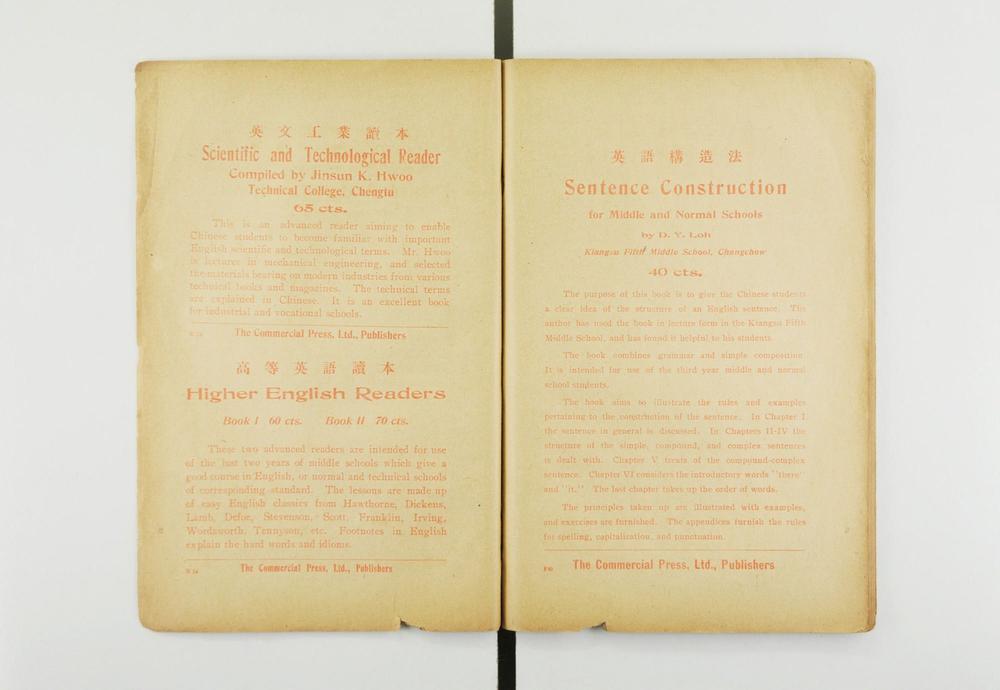 英文工業讀本
Scientific and Technological Reader
Compiled by Jinsun K. Hwoo
Technical College, Chengtu
65 cts.
This is an advanced reader aiming to enable
Chinese students to become familiar with important
English scientific and technological terms. Mr. Hwoo
is lecturer in mechanical engineering, and selected
the materials bearing on modern industries from various
technical books and magazines. The technical terms
are explained in Chinese. It is an excellent book
for industrial and vocational schools.
The Commercial Press, Ltd., Publishers
高等英語讀本
Higher English Readers
Book I 60 cts. Book II 70 cts.
These two advanced readers are intended for use
of the last two years of middle schools which give a
good course in English, or normal and technical schools
of corresponding standard. The lessons are made up
of easy English classics from Hawthorne, Dickens,
Lamb, Defoe, Stevenson, Scott, Franklin, Irving,
Wordsworth, Tennyson, etc. Footnotes in English
explain the hard words and idioms.
The Commercial Press, Ltd., Publishers
英語構造法
Sentence Construction
for Middle and Normal Schools
by D. Y. Loh
Kiangsu Fifth Middle School, Changchow
40 cts.
The purpose of this book is to give the Chinese students
a clear idea of the structure of an English sentence. The
author has used the book in lecture form in the Kiangsu Fifth
Middle School, and has found it helpful to his students.
The book combines grammar and simple composition.
It is intended for use of the third year middle and normal
school students.
The book aims to illustrate the rules and examples
pertaining to the construction of the sentence. In Chapter I
the sentence in general is discussed. In Chapters II-IV the
structure of the simple, compound, and complex sentences
is dealt with. Chapter V treats of the compound-complex
sentence. Chapter VI considers the introductory words "there"
and "it." The last chapter takes up the order of words.
The principles taken up are illustrated with examples,
and exercises are furnished. The appendices furnish the rules
for spelling, capitalization, and punctuation.
The Commercial Press, Ltd., Publishers